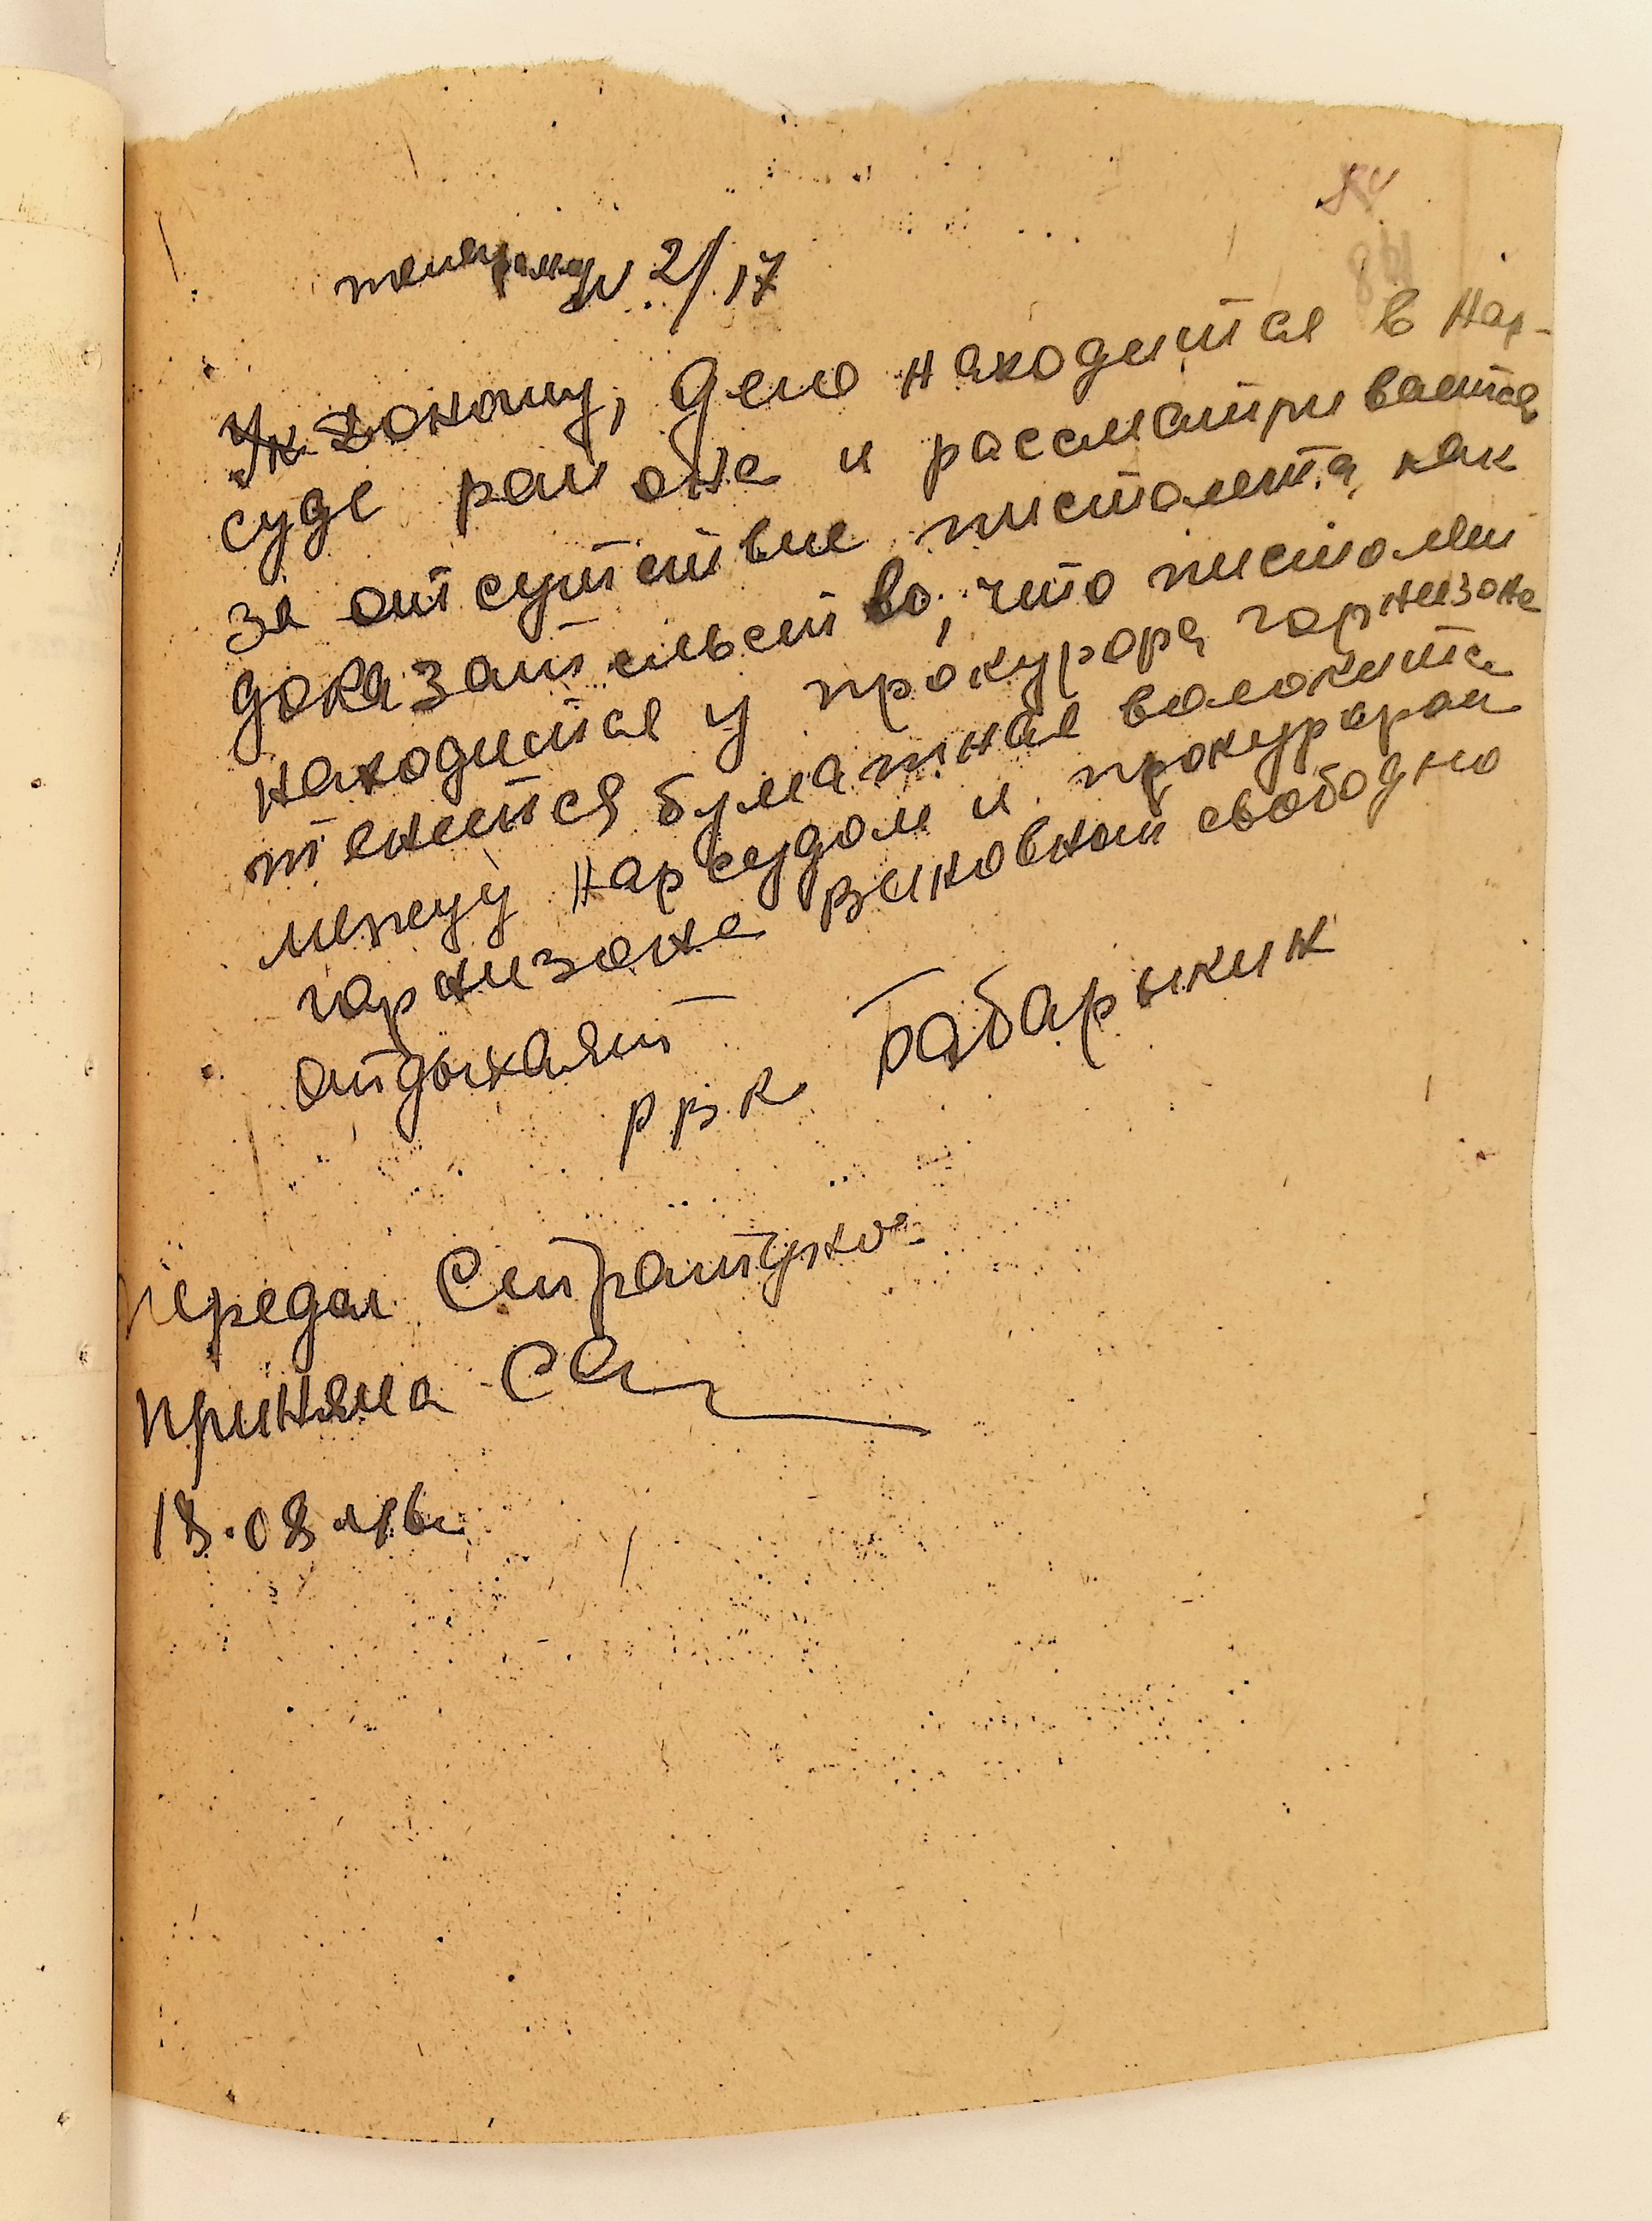 84
телеграмму 2/17
Ук Доношу, дело находится в Нар-
суде района и рассматривается
за отсутствие пистолета, как
доказательство, что пистолет
находится у прокурора гарнизона
тянется бумажная волокита
между нарсудом и прокурором
гарнизона виновный свободно
отдыхает
РВК Бабарыкин
Передал
приняла
18.08